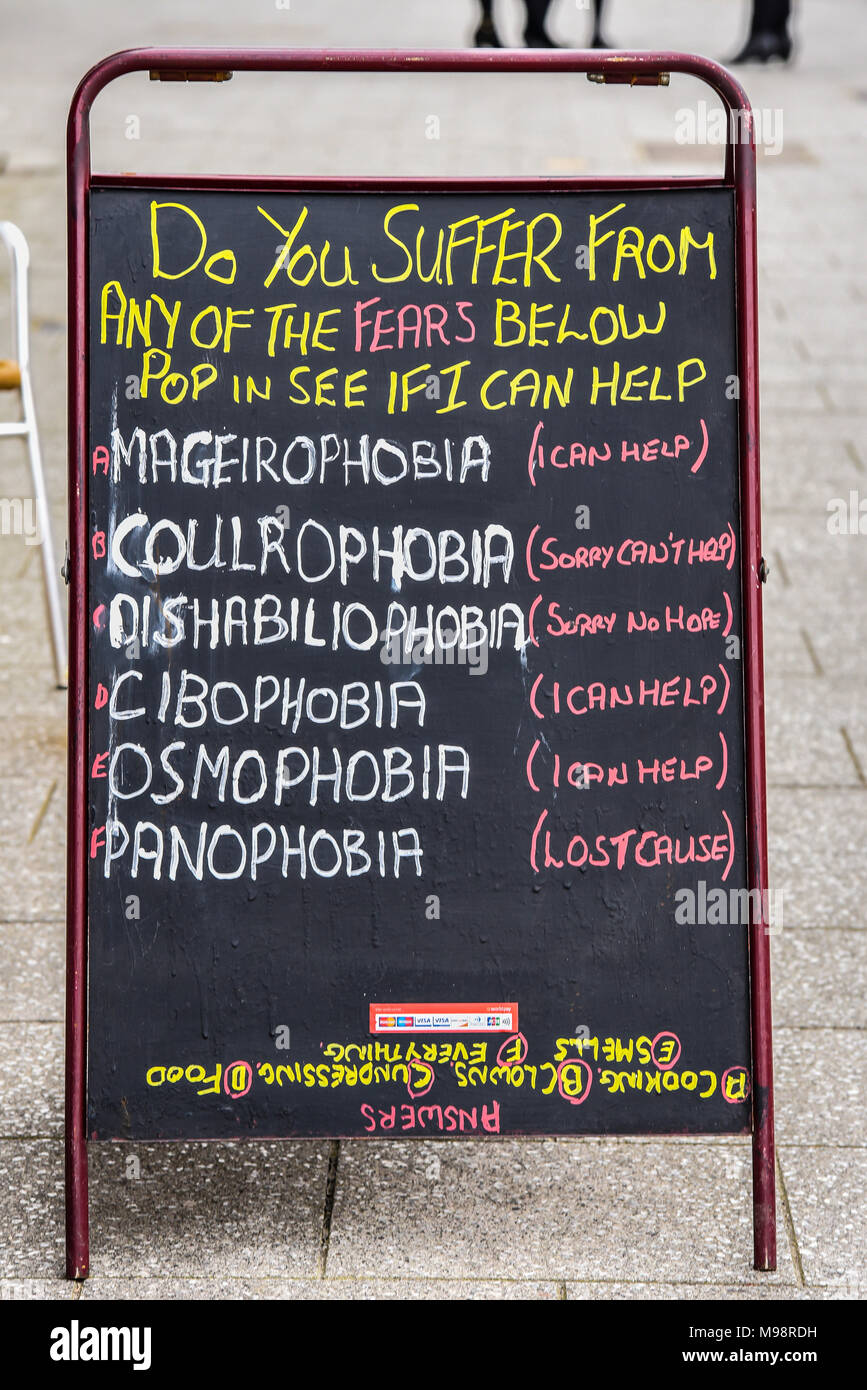 DO YOU SUFFER FROM
ANY OF THE FEARS BELOW
POP IN SEE IF I CAN HELP
A MAGEIROPHOBIA (I CAN HELP)
B COULROPHOBIA (SORRY CAN'T HELP)
C DISHABILIOPHOBIA (SORRY NO HOPE)
D CIBOPHOBIA (I CAN HELP)
E OSMOPHOBIA (I CAN HELP)
F PANOPHOBIA (LOST CAUSE)
VISA VISA
ANSWERS
A COOKING. B CLOWNS. C UNDRESSING. D FOOD
E SMELLS F EVERYTHING.
alamy
Image ID: M98RDH
www.alamy.com